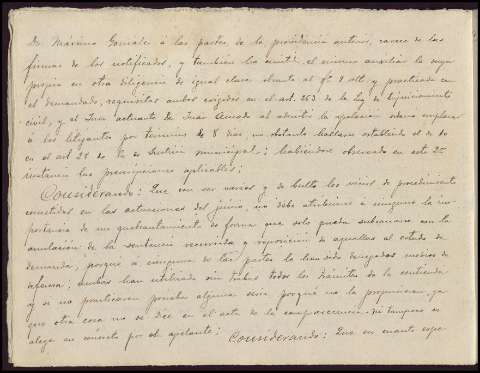 D. Máximo González á las partes, de la providencia anterior, carece de las
firmas de los notificados, y tambien ha omitido el mismo auxiliar la suya
propia en otra diligencia de igual clase obrante al fº 8 vlt y practicada con
el demandado, requisitos ambos exigidos en el art. 263 de la Ley de Enjuiciamiento
civil, y el Juez actuante de Juan al admitir la apelacion ordena emplazar
á los litigantes por termino de 8 dias, no obstante hallarse establecido el de
en el art 21 de la de Justicia municipal; habiendose observado en esta 2ª
instancia las prescripciones aplicables;
Considerando: Que con ser varios y de bulto los vicios de procedimiento
cometidos en las actuaciones del juicio, no debe atribuirse á ninguno la im-
portancia de un quebrantamiento de forma que solo pueda subsanarse con la
anulación de la sentencia recurrida y reposición de aquellas al estado de
demanda, porqué á ninguna de las partes la han sido denegados medios de
defensa, ambas han utilizado sin trabas todos los trámites de la contienda
y si no practicaron prueba alguna seria porqué no la propusieron, ya
que otra cosa no se dice en el acta de la comparecencia ni tampoco se
alega en concreto por el apelante; Considerando: Que en cuanto espe-